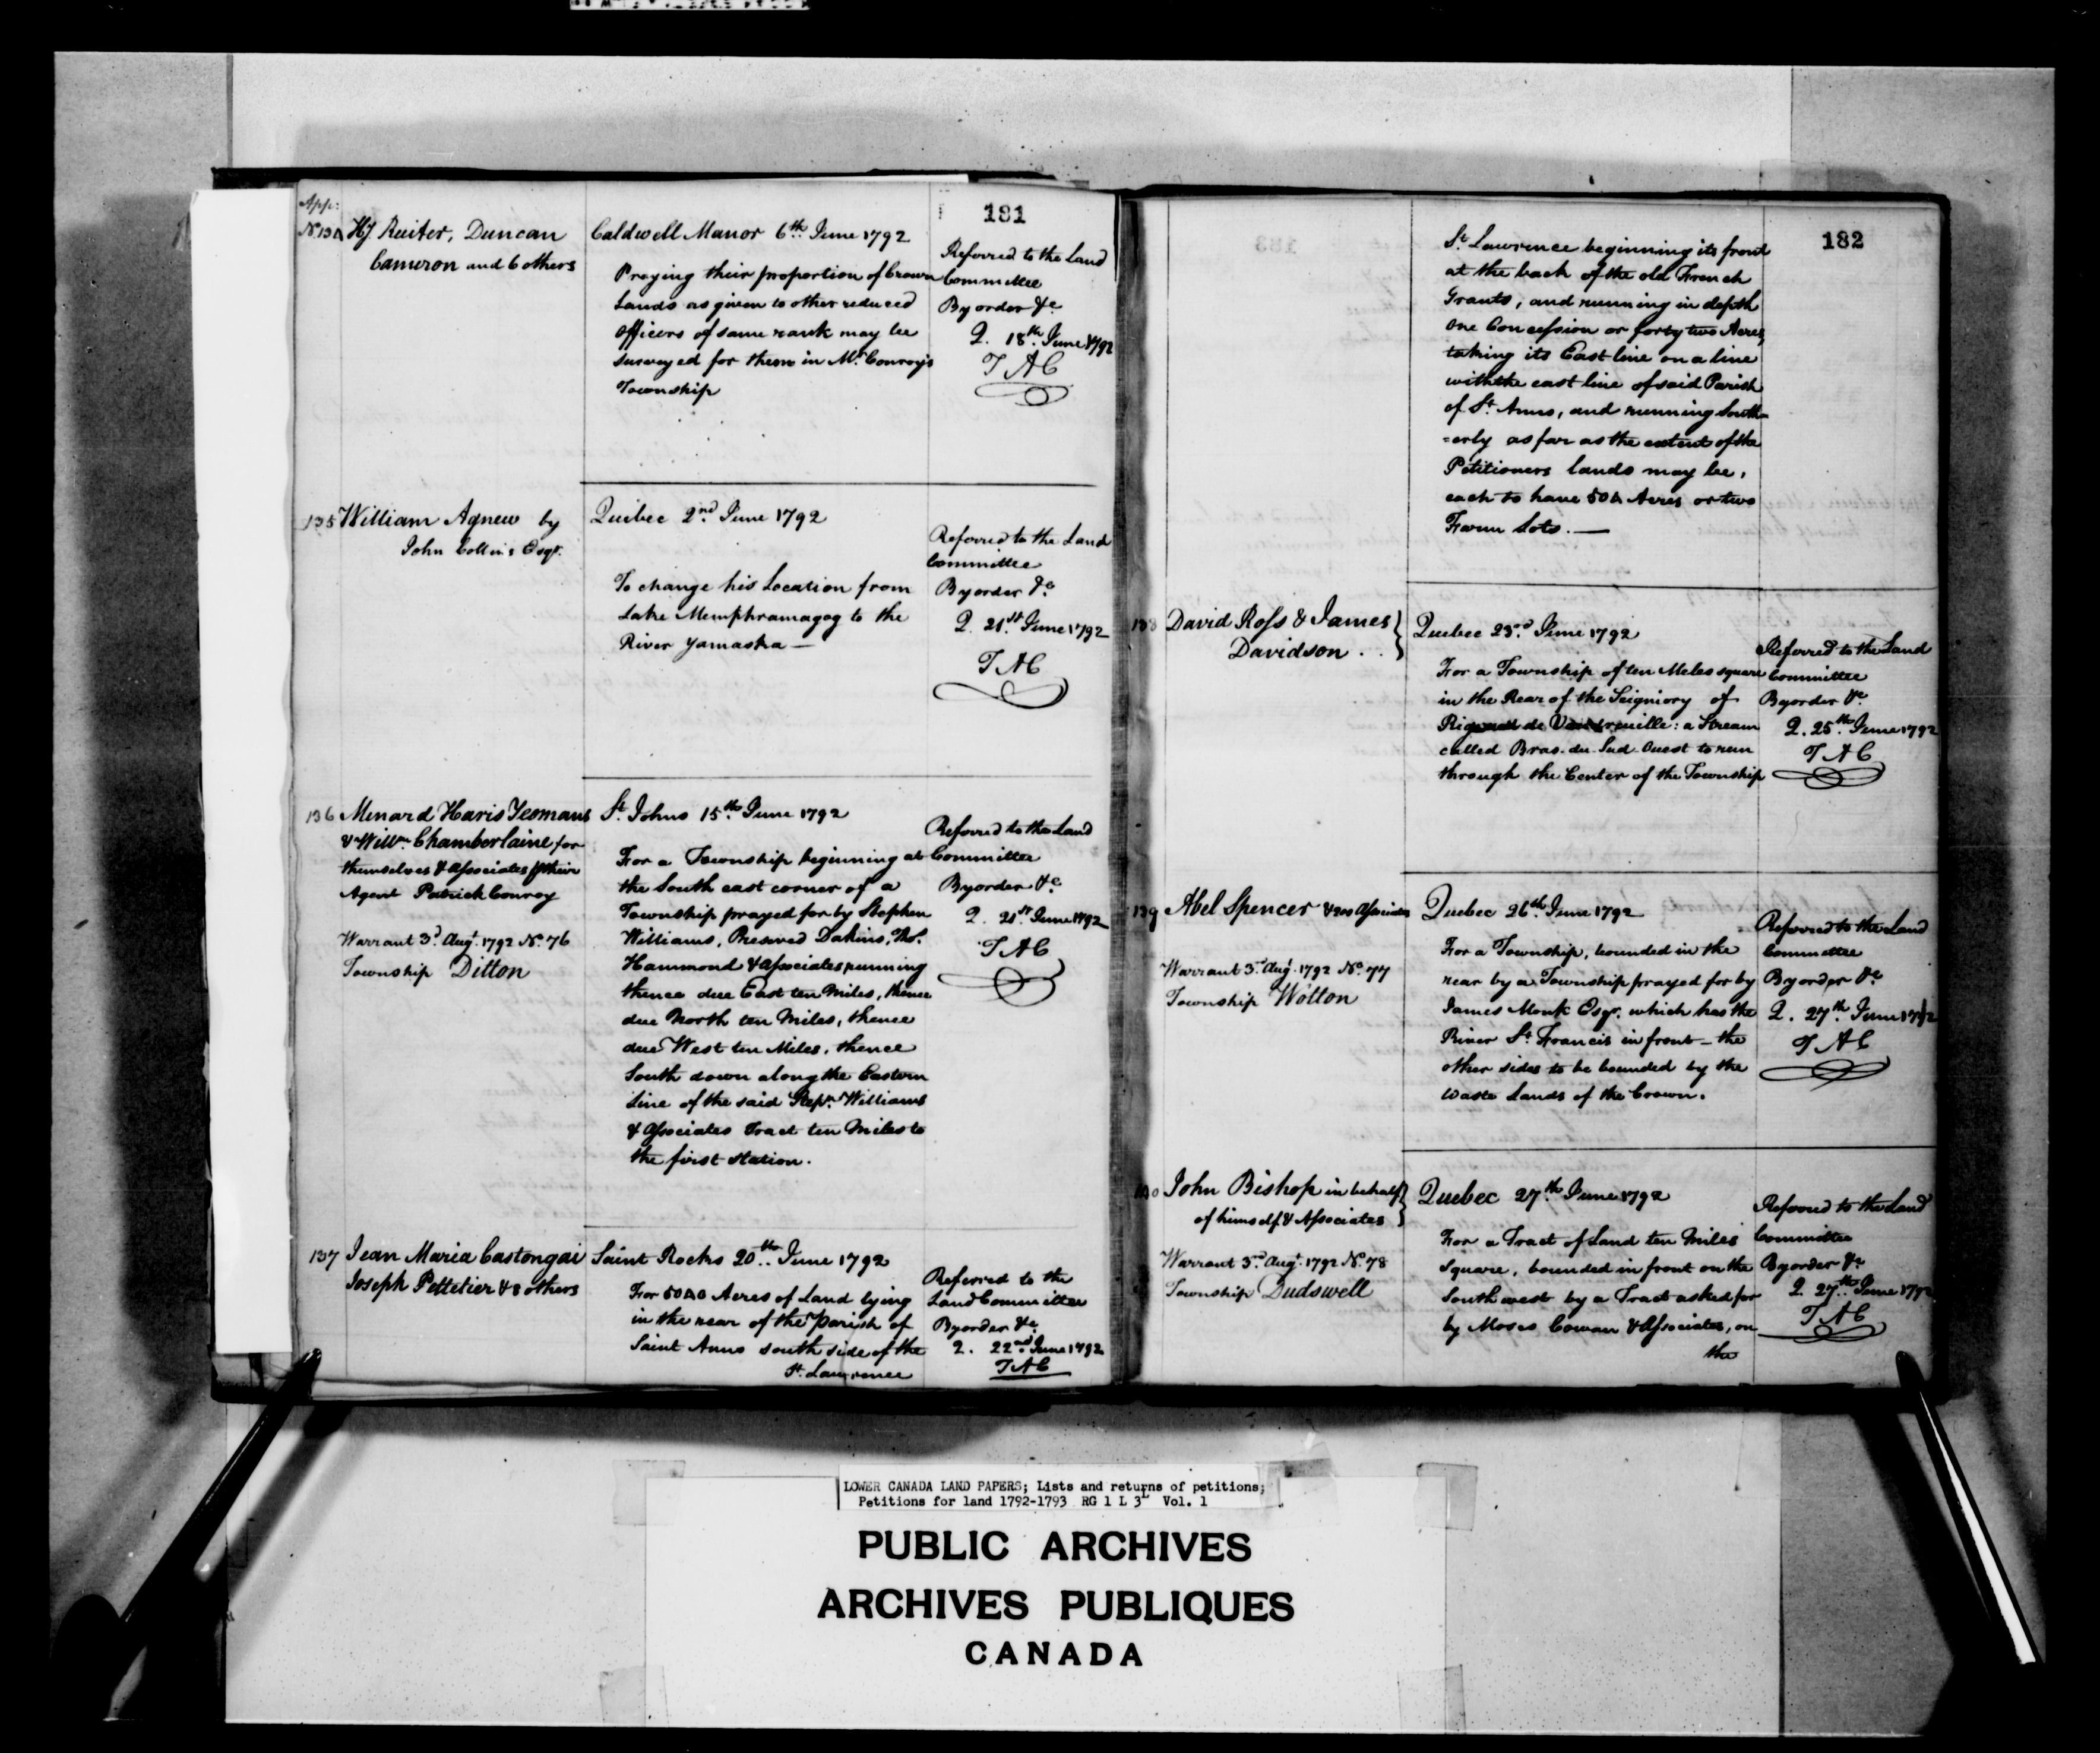 181
App:
No. 134 Hy. Ruiter, Duncan
Cameron and 6 others
Caldwell Manor 6th. June 1792
Praying their proportion of Crown
Lands as given to other reduced
officers of same rank may be
surveyed for them in Mr. Conroy's
Township
Referred to the Land
Committee
By order &c.
Q. 18th. June 1792
T A C
135 William Agnew by
John Collins Esqr.
Quebec 2nd. June 1792
To change his Location from
Lake Memphramagog to the
River Yamaska —
Referred to the Land
Committee
By order &c.
Q. 21st June 1792
T A C
136 Menard Haris Yeomans
& Willm. Chamberlaine for
themselves & Associates p their
Agent Patrick Conroy
Warrant 3d. Augt. 1792 No. 76
Township Ditton
St. Johns 15th. June 1792
For a Township beginning at
the South east corner of a
Township prayed for by Stephen
Williams, Preserved Dakins, Ths.
Hammond & Associates running
thence due East ten Miles, thence
due North ten Miles, thence
due West ten Miles, thence
South down along the Eastern
Line of the said Stepn. Williams
& Associates Tract ten Miles to
the first station.
Referred to the Land
Committee
By order &c.
Q. 21st June 1792
T A C
137 Jean Maria Castongai
Joseph Pelletier & 8 others
Saint Rocks 20th June 1792
For 5000 Acres of Land lying
in the rear of the Parish of
Saint Anns south side of the
St. Lawrence
Referred to the
Land Committee
By order &c
Q. 22nd June 1792
T A C
182
St. Lawrence beginning its front
at the back of the old French
Grants, and running in depth
one Concession or forty two Acres,
taking its East line on a line
with the east line of said Parish
of St. Anns, and running South=
=erly as far as the extent of the
Petitioners lands may be,
each to have 500 Acres or two
Farm Lots. —
138 David Ross & James
Davidson . .
Quebec 23rd. June 1792
For a Township of ten Miles square
in the Rear of the Seigniory of
Rigaud de Vaudreuille: a Stream
called Bras. du Sud Ouest to run
through the Center of the Township
Referred to the Land
Committee
By order &c.
Q. 25th June 1792
T A C
139 Abel Spencer & 200 Associates
Warrant 3rd. Augt. 1792 No. 77
Township Wotton
Quebec 26th. June 1792
For a Township, bounded in the
rear by a Township prayed for by
James Monk Esqr. which has the
River St. Francis in front — the
other sides to be bounded by the
waste Lands of the Crown.
Referred to the Land
Committee
By order &c
Q. 27th June 1792
T A C
140 John Bishop in behalf
of himself & Associates
Warrant 3rd. Augt. 1792 No. 78
Township Dudswell
Quebec 27th. June 1792
For a Tract of Land ten Miles
Square, bounded in front on the
South west by a Tract asked for
by Moses Cowan & Associates, on
the
Referred to the Land
Committee
By order &c
Q. 27th June 1792
T A C
LOWER CANADA LAND PAPERS; Lists and returns of petitions;
Petitions for land 1792-1793 RG 1 L 3L Vol. 1
PUBLIC ARCHIVES
ARCHIVES PUBLIQUES
CANADA